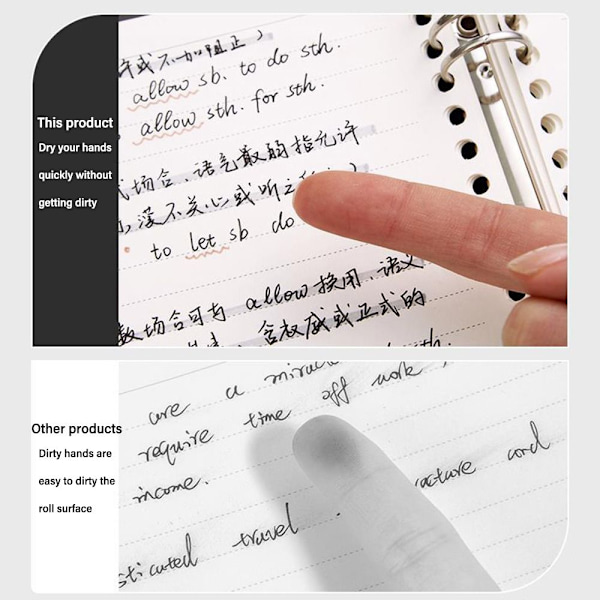 This product
Dry your hands
quickly without
getting dirty
许或不加阻止)
allow sb. to do sth.
allow sth. for sth.
场合、语气较弱的指允许
没不关心或听之
to let sb do
场合可与 allow 换用、语义
含权威或正式的
th.
Other products
Dirty hands are
easy to dirty the
roll surface
are a miracle
require time off work,
income.
sticated travel
cord